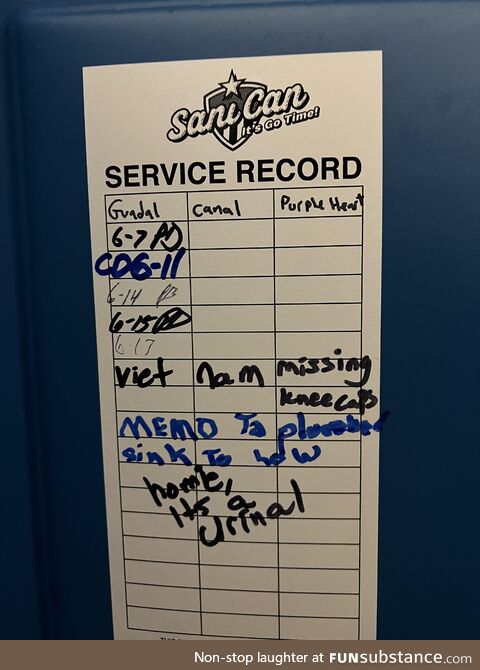 Sani Can
It's Go Time!
SERVICE RECORD
Guadal canal Purple Heart
6-7
CD6-11
6-14
6-15
6-17
Viet nam missing
knee caps
MEMO To plumber
sink To low
homie,
its a
urinal
Non-stop laughter at FUNsubstance.com